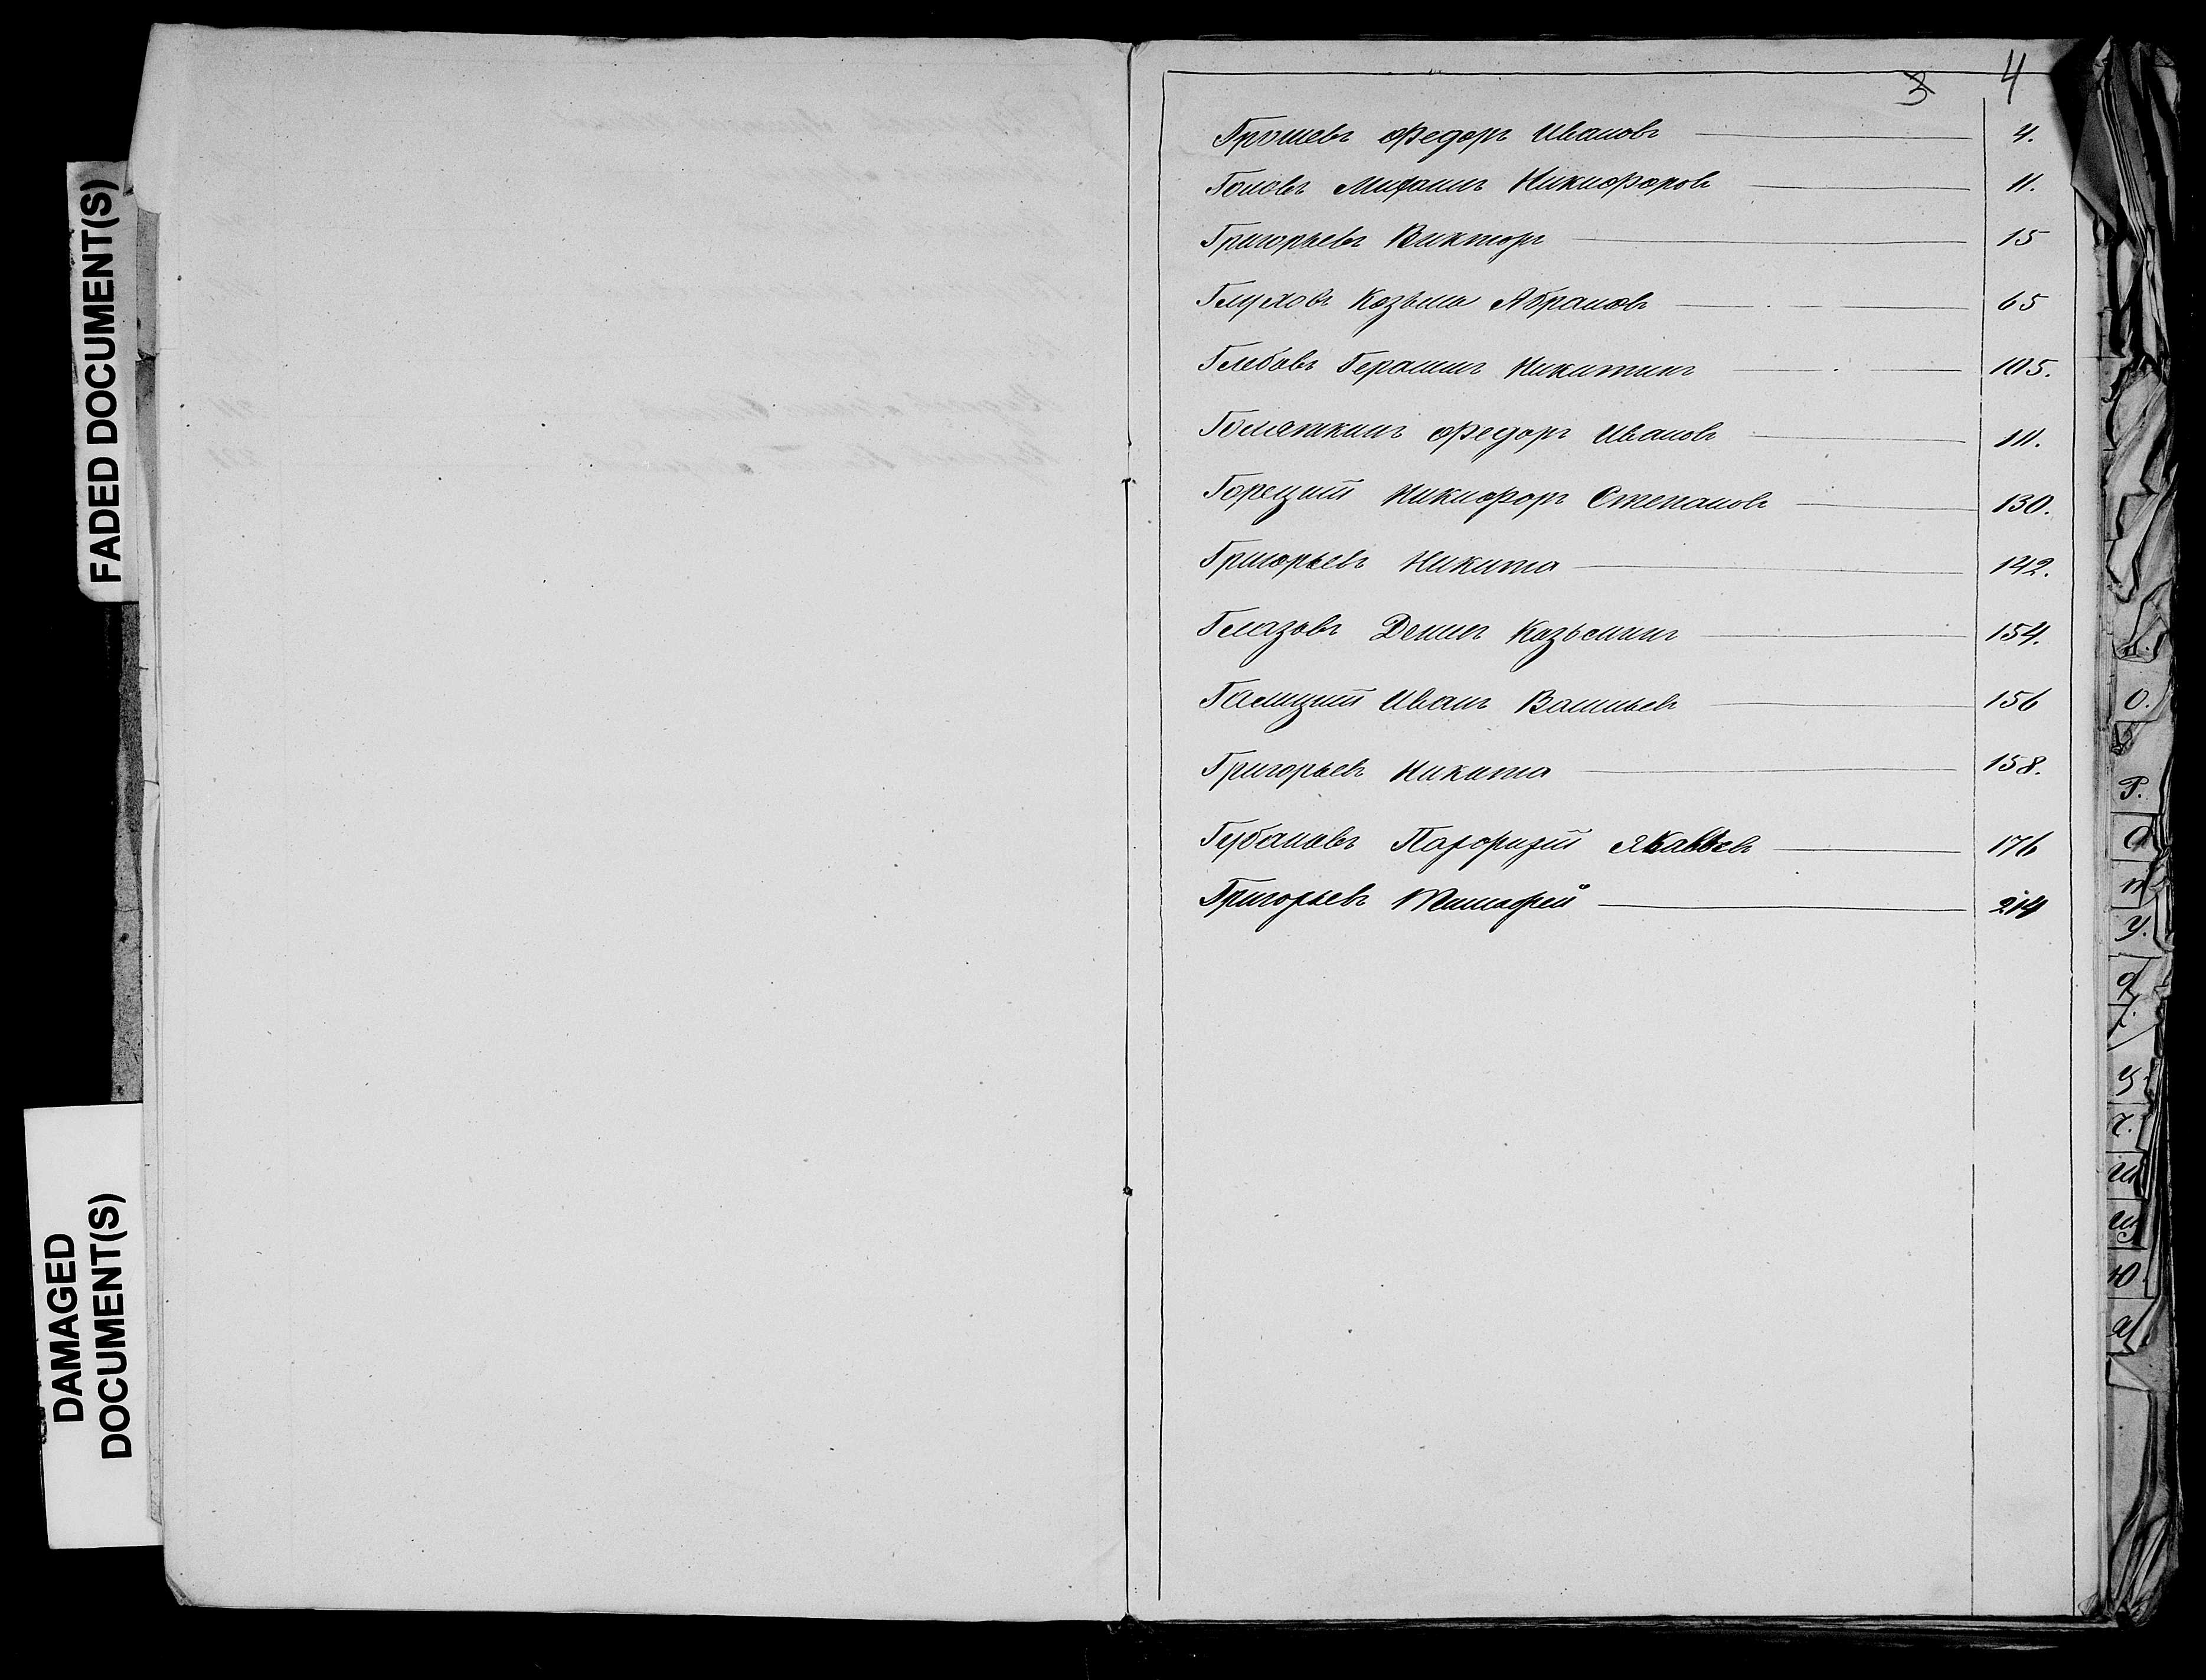 FADED DOCUMENT(S)
DAMAGED
DOCUMENT(S)
3 4
Грошевъ Федоръ Ивановъ 4.
Михаилъ Никифоровъ 11.
Григорьевъ Викторъ 15
Глуховъ Козьма Абрамовъ 65
Глебовъ Герасимъ Никитинъ 105.
Голяткинъ Федоръ Ивановъ 111.
Горецкий Никифоръ Степановъ 130.
Григорьевъ Никита 142.
Глазовъ Денисъ Козьминъ 154.
Галицкий Иванъ Васильевъ 156
Григорьевъ Никита 158.
Яковлевъ 176
Григорьевъ Тимофей 214
О.
Р.
С
Т
У.
Ф
Х.
Ц.
Ч.
Ш
Щ
Ю.